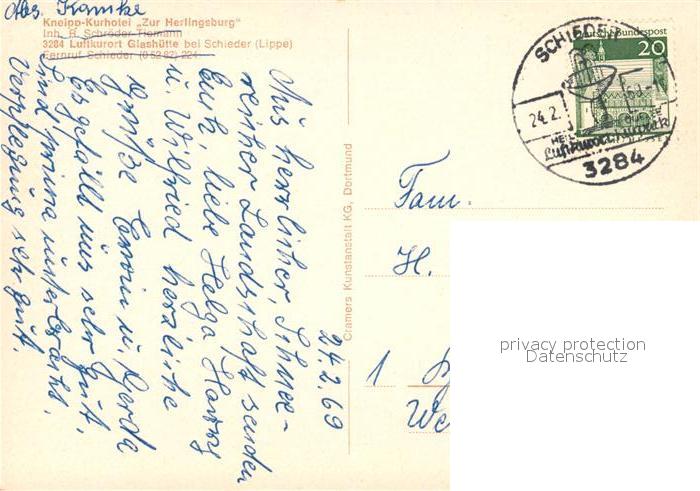 Abs. Kamke
Kneipp-Kurhotel „Zur Herlingsburg“
Inh. R. Schröder-Tiemann
3284 Luftkurort Glashütte bei Schieder (Lippe)
Fernruf Schieder (0 52 82) 224
24.2.69
Aus herrlicher, Schnee-
reicher Landschaft senden
Euch, liebe Helga Harry
u. Wilfried herzliche
Grüße Erwin u. Gerda
Es gefällt uns sehr gut.
Sind prima unterbracht.
Verpflegung sehr gut.
Cramers Kunstanstalt KG, Dortmund
SCHIEDER
24.2.
Luftkurort
3284
Deutsche Bundespost
20
Fam.
H.
1
privacy protection
Datenschutz